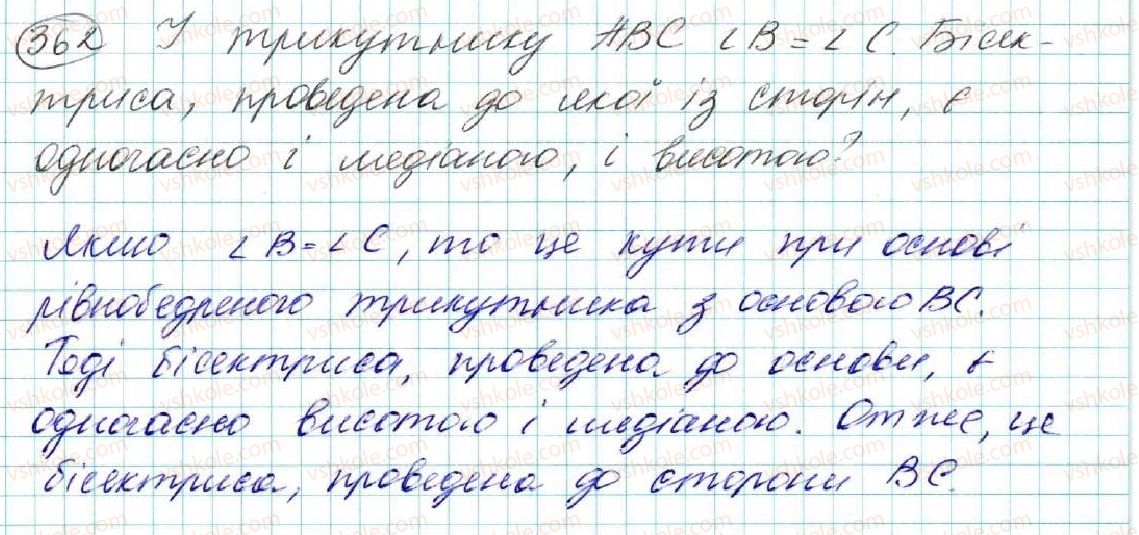 362 У трикутнику ABC ∠B = ∠C. Бісек-
триса, проведена до якої із сторін, є
одночасно і медіаною, і висотою?
Якщо ∠B = ∠C, то це кути при основі
рівнобедреного трикутника з основою BC.
Тоді бісектриса, проведена до основи, є
одночасно висотою і медіаною. Отже, це
бісектриса, проведена до сторони BC.